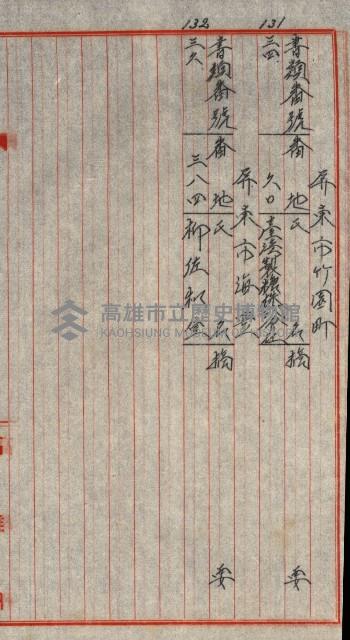 131
屏東市竹園町
書類番號 番地 氏名 摘要
三四 九〇 臺灣製糖株式會社
132
屏東市海豐
書類番號 番地 氏名 摘要
三八四
高雄市立歷史博物館
KAOHSIUNG MUSEUM